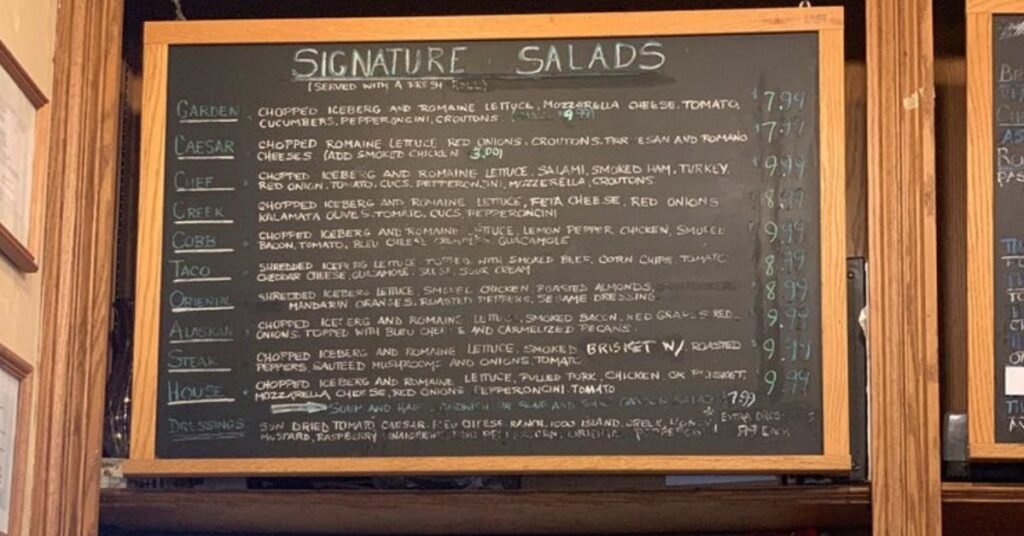 SIGNATURE SALADS
(SERVED WITH A FRESH ROLL)
GARDEN CHOPPED ICEBERG AND ROMAINE LETTUCE, MOZZARELLA CHEESE, TOMATO, 7.99
CUCUMBERS, PEPPERONCINI, CROUTONS
CAESAR CHOPPED ROMAINE LETTUCE, RED ONIONS, CROUTONS, PAR ESAN AND ROMANO 7.99
CHEESES (ADD SMOKED CHICKEN 3.00)
CHEF CHOPPED ICEBERG AND ROMAINE LETTUCE, SALAMI, SMOKED HAM, TURKEY, 9.99
RED ONION, TOMATO, CUCS, PEPPERONCINI, MOZZERELLA, CROUTONS
GREEK CHOPPED ICEBERG AND ROMAINE LETTUCE, FETA CHEESE, RED ONIONS 8.99
KALAMATA OLIVES, TOMATO, CUCS, PEPPERONCINI
COBB CHOPPED ICEBERG AND ROMAINE LETTUCE, LEMON PEPPER CHICKEN, SMOKED 9.99
BACON, TOMATO, BLEU CHEESE CRUMBLES GUACAMOLE
TACO SHREDDED ICEBERG LETTUCE TOPPED WITH SMOKED BEEF, CORN CHIPS TOMATO, 8.99
CHEDDAR CHEESE, GUACAMOLE, SALSA, SOUR CREAM
ORIENTAL SHREDDED ICEBERG LETTUCE, SMOKED CHICKEN, ROASTED ALMONDS, 8.99
MANDARIN ORANGES, ROASTED PEPPERS, SESAME DRESSING
ALASKAN CHOPPED ICEBERG AND ROMAINE LETTUCE, SMOKED BACON, RED GRAPES RED 9.99
ONIONS, TOPPED WITH BLEU CHEESE AND CARMELIZED PECANS.
STEAK CHOPPED ICEBERG AND ROMAINE LETTUCE, SMOKED BRISKET W/ ROASTED 9.99
PEPPERS SAUTEED MUSHROOMS AND ONIONS, TOMATO
HOUSE CHOPPED ICEBERG AND ROMAINE LETTUCE, PULLED PORK, CHICKEN OR BRISKET, 9.99
MOZZARELLA CHEESE, RED ONIONS PEPPERONCINI, TOMATO
SOUP AND HALF SANDWICH OR SOUP AND GARDEN SALAD 7.99
DRESSINGS SUN DRIED TOMATO CAESAR, BLEU CHEESE, RANCH, 1000 ISLAND, GREEK, HONEY
MUSTARD, RASPBERRY VINAIGRETTE, ORIENTAL
* EXTRA DRESS
EACH